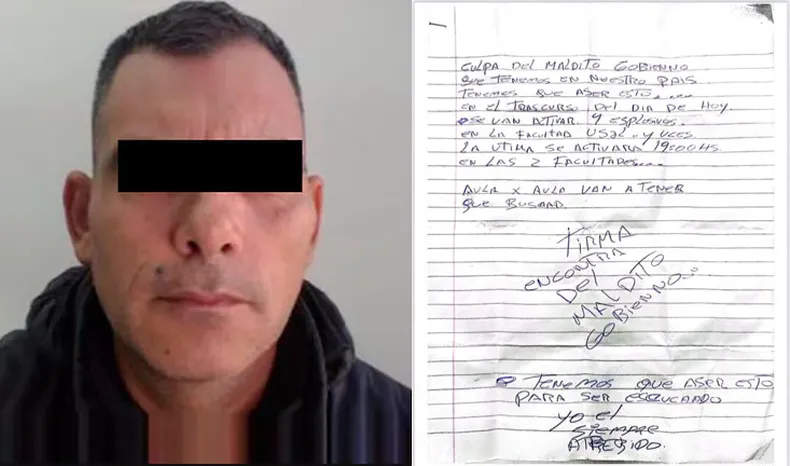 CULPA DEL MALDITO GOBIENNO
QUE TENEMOS EN NUESTRO PAIS
TENEMOS QUE ASER ESTO.....
EN EL TRASCURSO DEL DIA DE HOY.
SE VAN ACTIVAR 9 ESPLOSIVOS.
EN LA FACULTAD USAL.. Y UCES.
LA UTIMA SE ACTIVARA 19:00 HS.
EN LAS 2 FACULTADES....
AULA X AULA VAN A TENER
QUE BUSCAR.
FIRMA
ENCONTRA
DEL
MALDITO
GOBIENNO...
TENEMOS QUE ASER ESTO
PARA SER ESCUCHADO
YO EL
SIEMPRE
ATREBIDO.